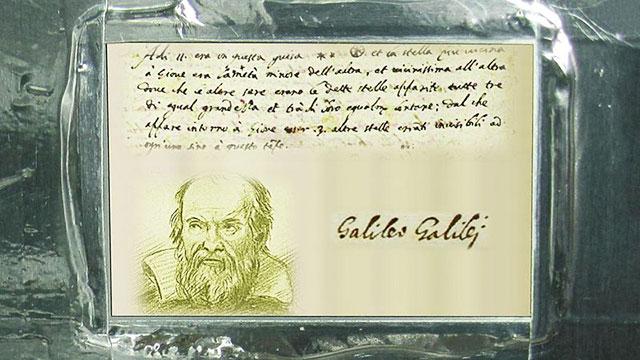 Adi 11. era in questa guisa ** et la stella più uicina
à Gioue era la metà minore dell'altra, et uicinissima all'altra
doue che le altre sere erano le dette stelle apparite tutte tre
di equal grandezza et trà di loro equalm. lontane; dal che
appare intorno à Gioue esser 3. altre stelle errāti inuisibili ad
ogn'uno sino à questo tēpo.
Galileo Galilej